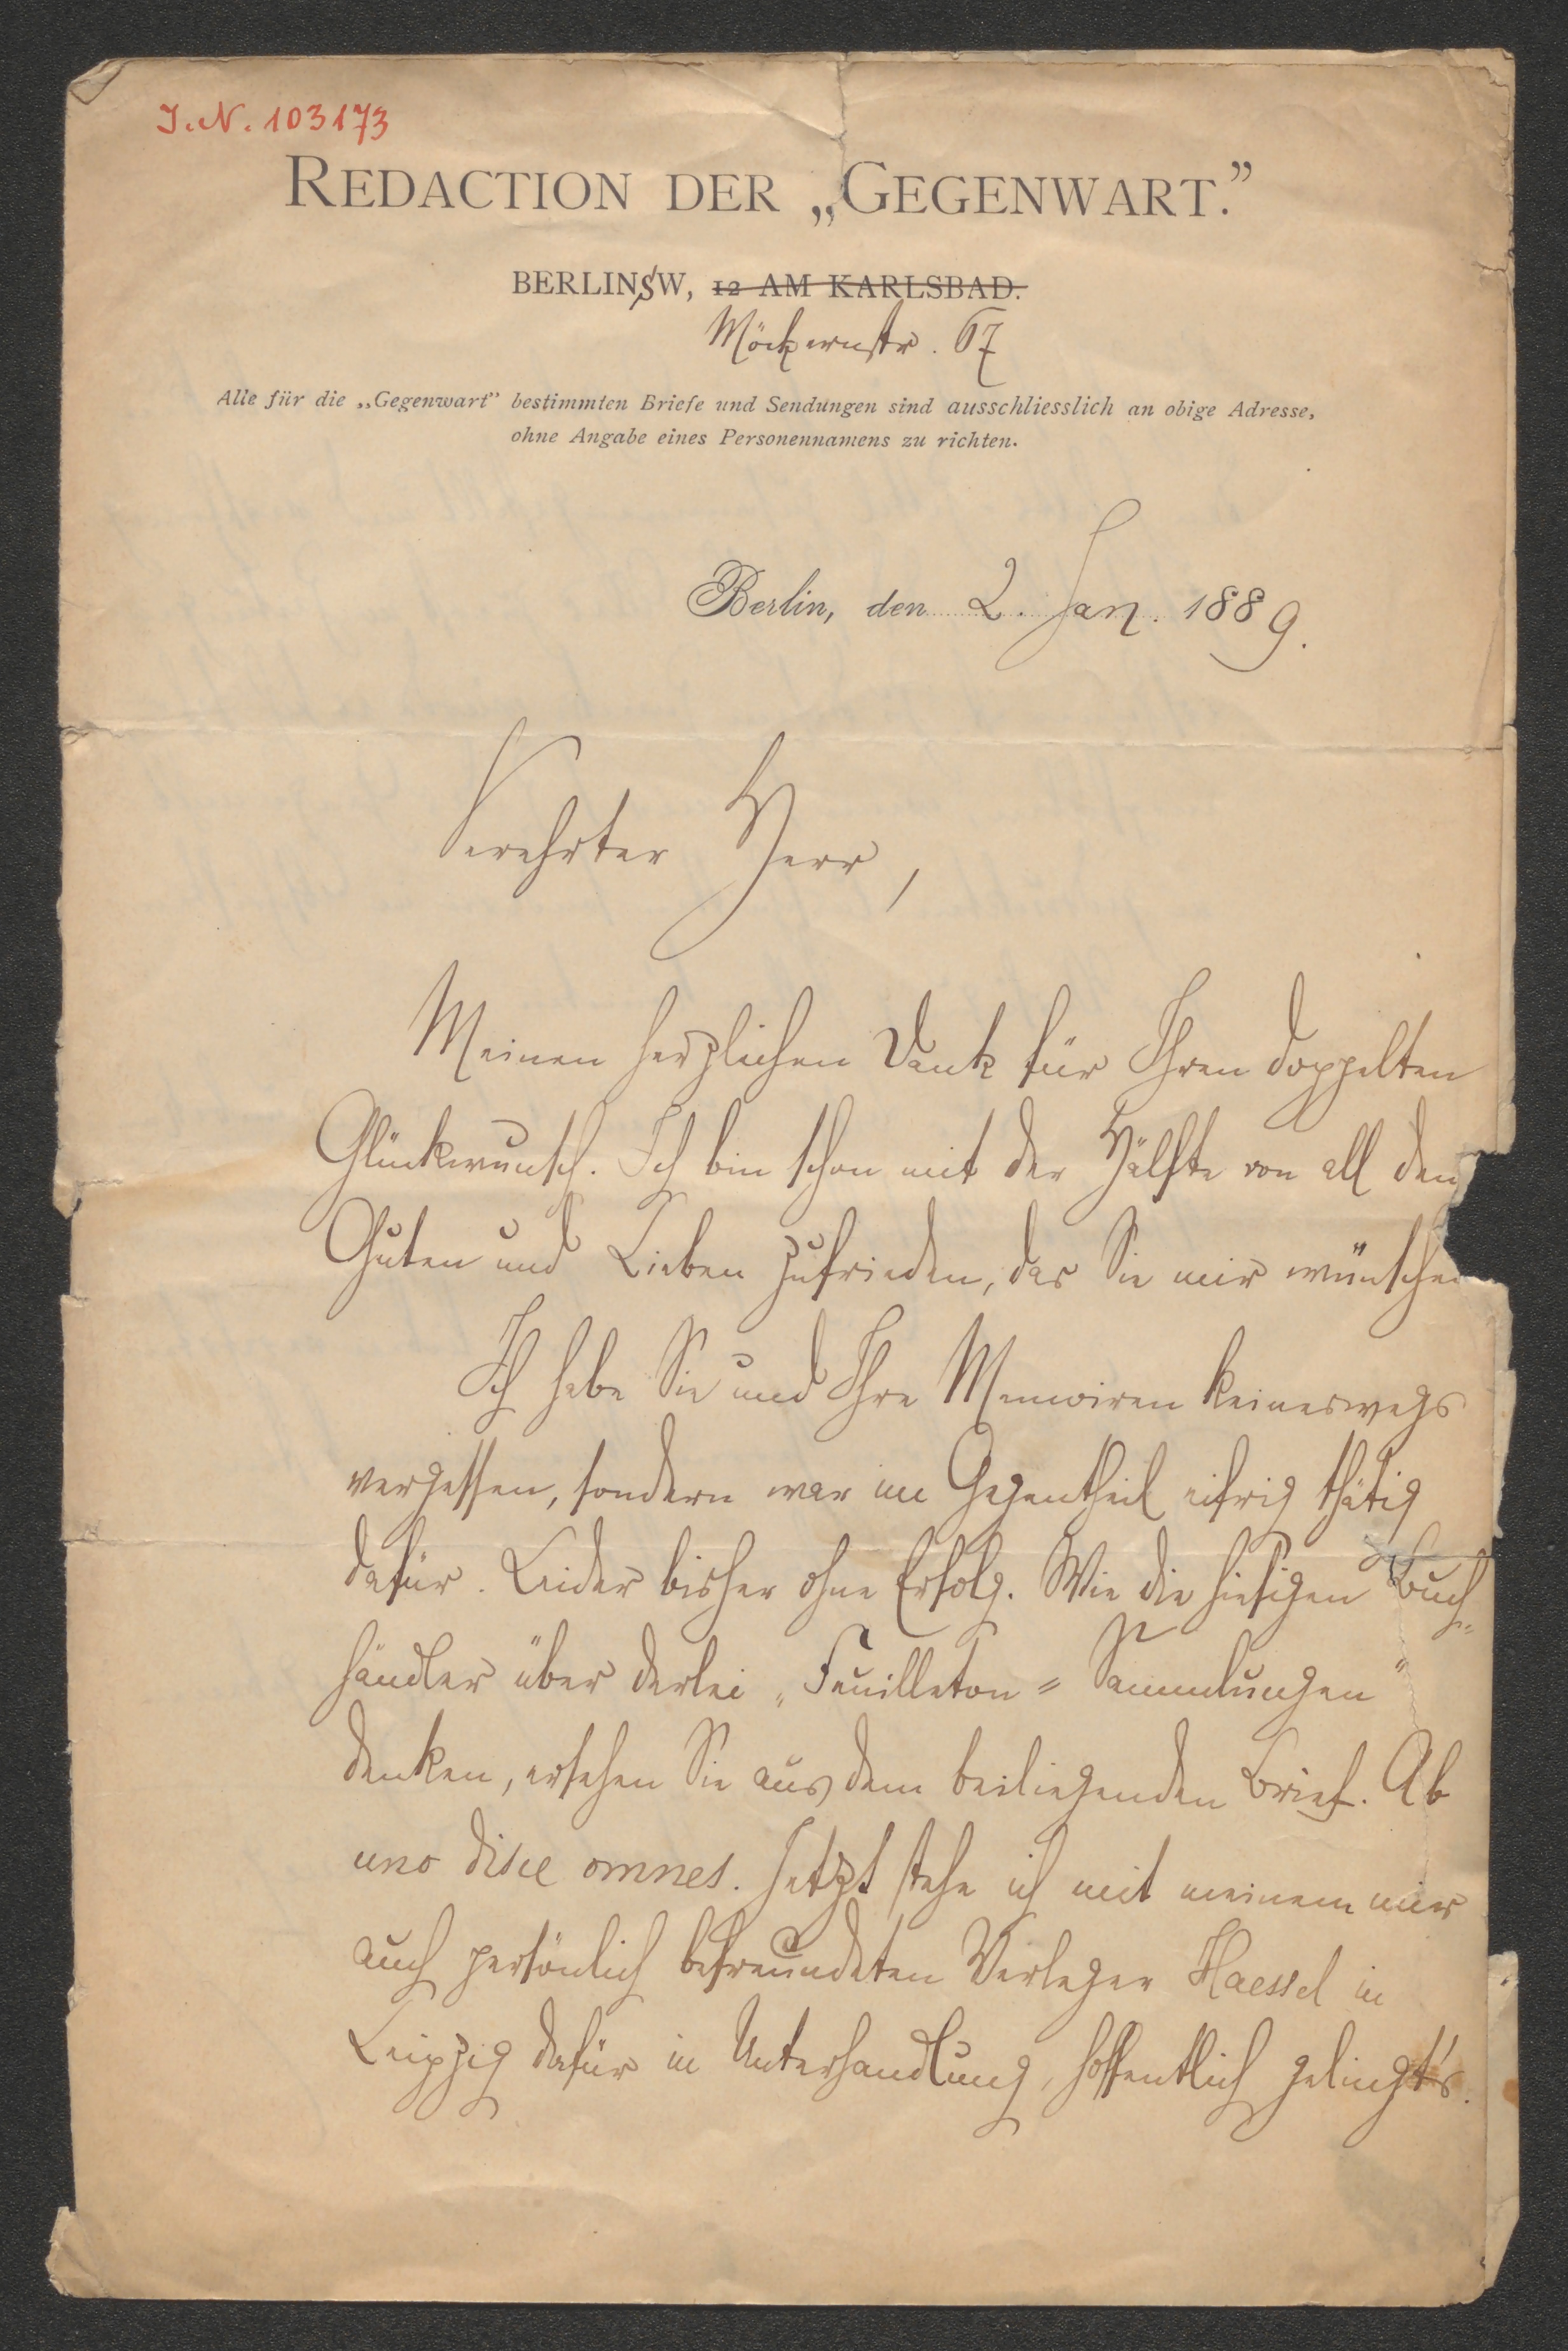 J.N. 103173
REDACTION DER „GEGENWART.”
BERLIN SW, 12 AM KARLSBAD.
Möckernstr. 67
Alle für die „Gegenwart” bestimmten Briefe und Sendungen sind ausschliesslich an obige Adresse,
ohne Angabe eines Personennamens zu richten.
Berlin, den 2. Jan. 1889.
Verehrter Herr,
Meinen herzlichen Dank für Ihren doppelten
Glückwunsch. Ich bin schon mit der Hälfte von all dem
Guten und Lieben zufrieden, das Sie mir wünschen
Ich habe Sie und Ihre Memoiren keineswegs
vergessen, sondern war im Gegentheil eifrig thätig
dafür. Leider bisher ohne Erfolg. Wie die hiesigen Buch-
händler über derlei „Feuilleton-Sammlungen”
denken, ersehen Sie aus dem beiliegenden Brief. Ab
uno disce omnes. Jetzt stehe ich mit meinem mir
auch persönlich befreundeten Verleger Haessel in
Leipzig dafür in Unterhandlung, hoffentlich gelingt's.